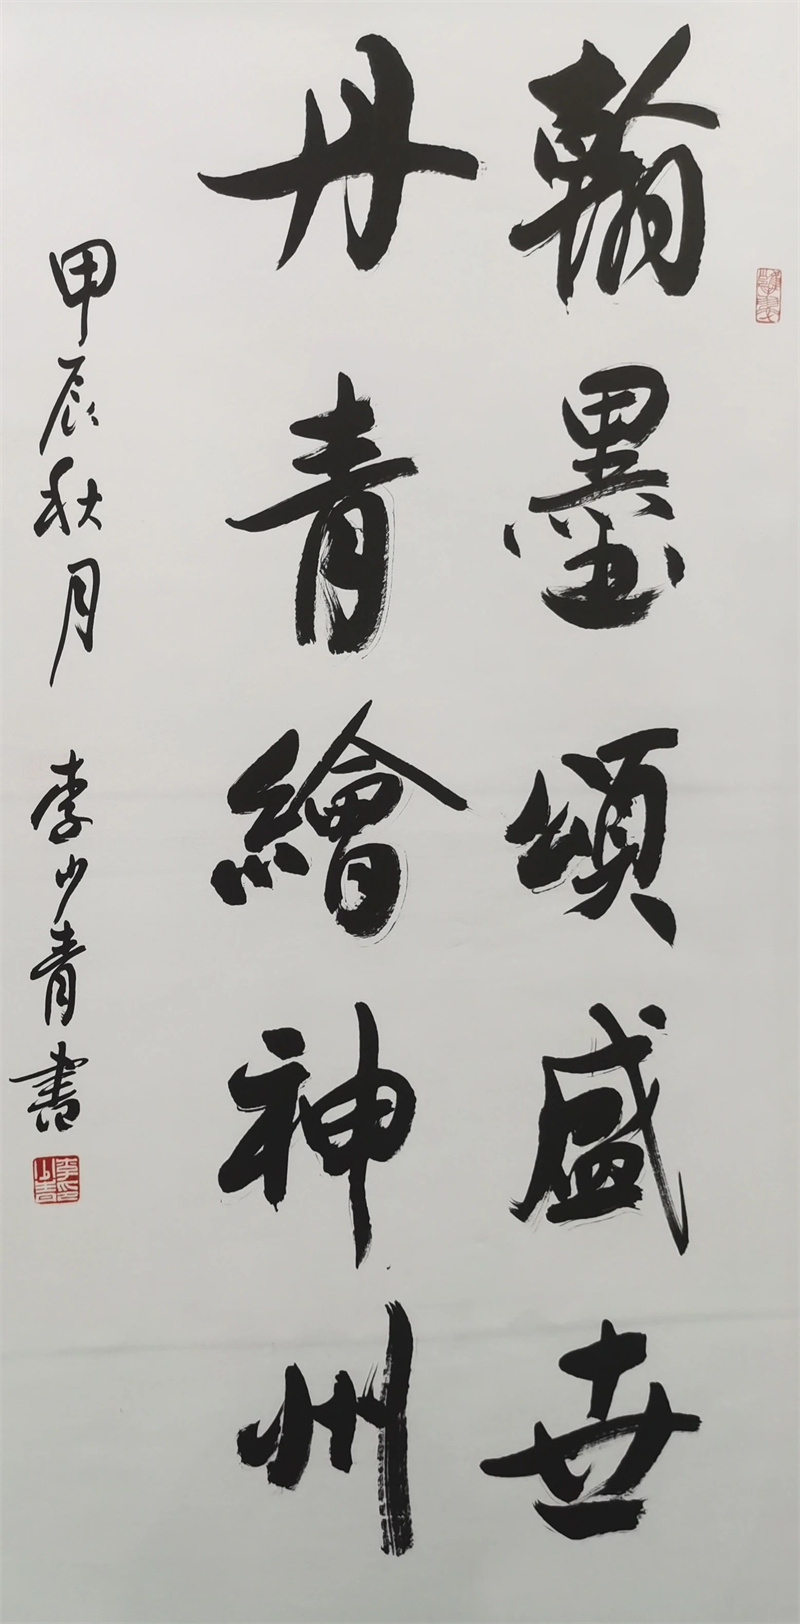 翰墨頌盛世
丹青繪神州
甲辰秋月 李少青書
李少青印